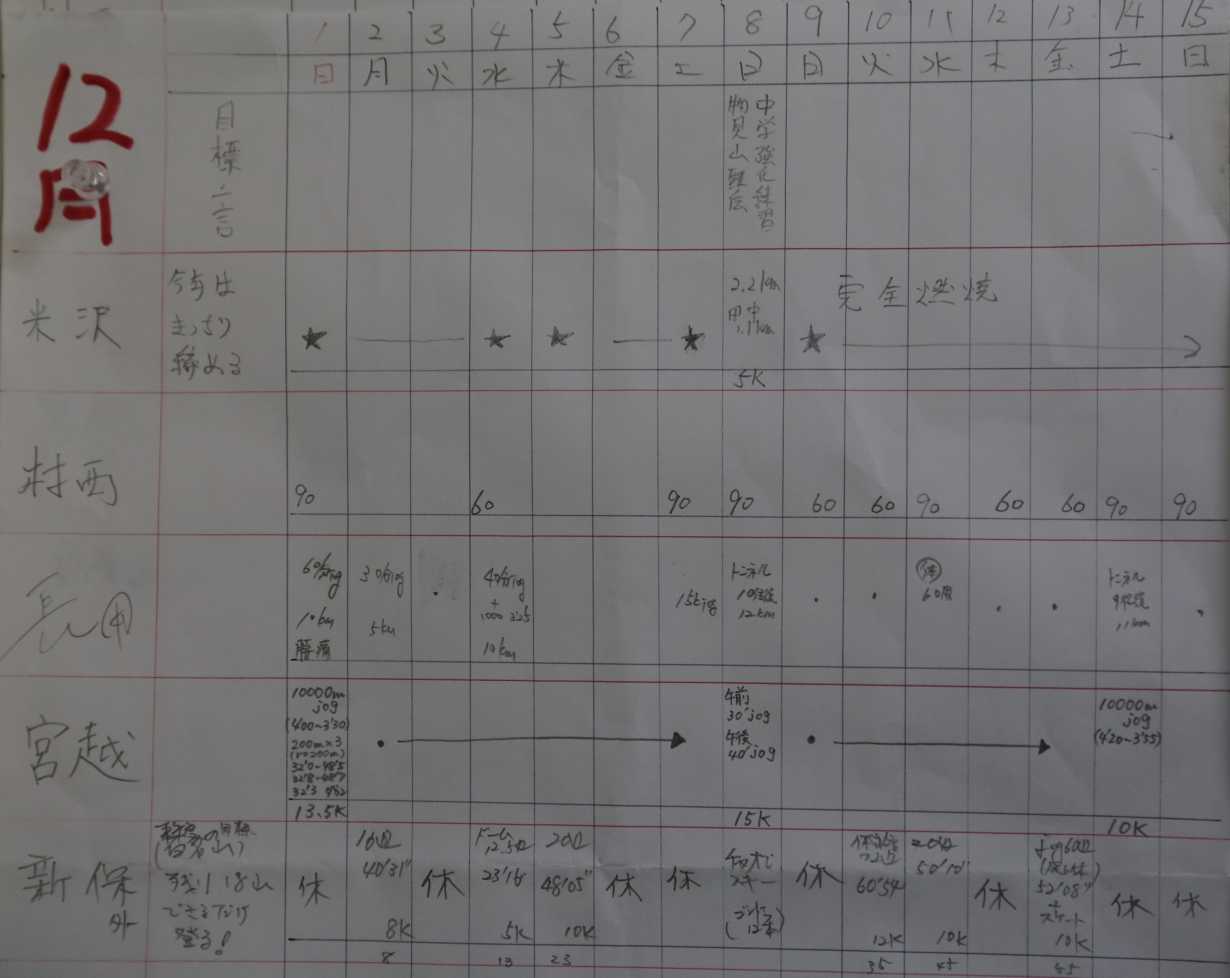 12月
1 2 3 4 5 6 7 8 9 10 11 12 13 14 15
日 月 火 水 木 金 土 日 日 火 水 木 金 土 日
目標・一言
中学強化練習
物見山駅伝
米沢
今年は
きっちり
締める
2.2km
1.1km
5K
完全燃焼
村西
90 60 90 90 60 60 90 60 60 90 90
長田
60分jog
10km
腰痛
30分jog
5km
40分jog
+
1000 3'25
10km
15k
トンネル
10往復
12km
60
トンネル
9往復
11km
宮越
10000m
jog
(4'00~3'30)
200m×3
(r=200m)
32"0-48"5
32"8-48"7
32"3
13.5K
午前
30'jog
午後
40'jog
15K
10000m
jog
(4'20~3'55)
10K
新保
外
(百名山)
残り18山
できるだけ
登る!
休
16周
40'31"
8K
8
休
ドーム
12.5周
5K
13
20周
48'05"
10K
23
休
休
スキー
休
60'54
12K
35
20周
50'10"
10K
45
休
52'08"
+
スケート
10K
55
休
休